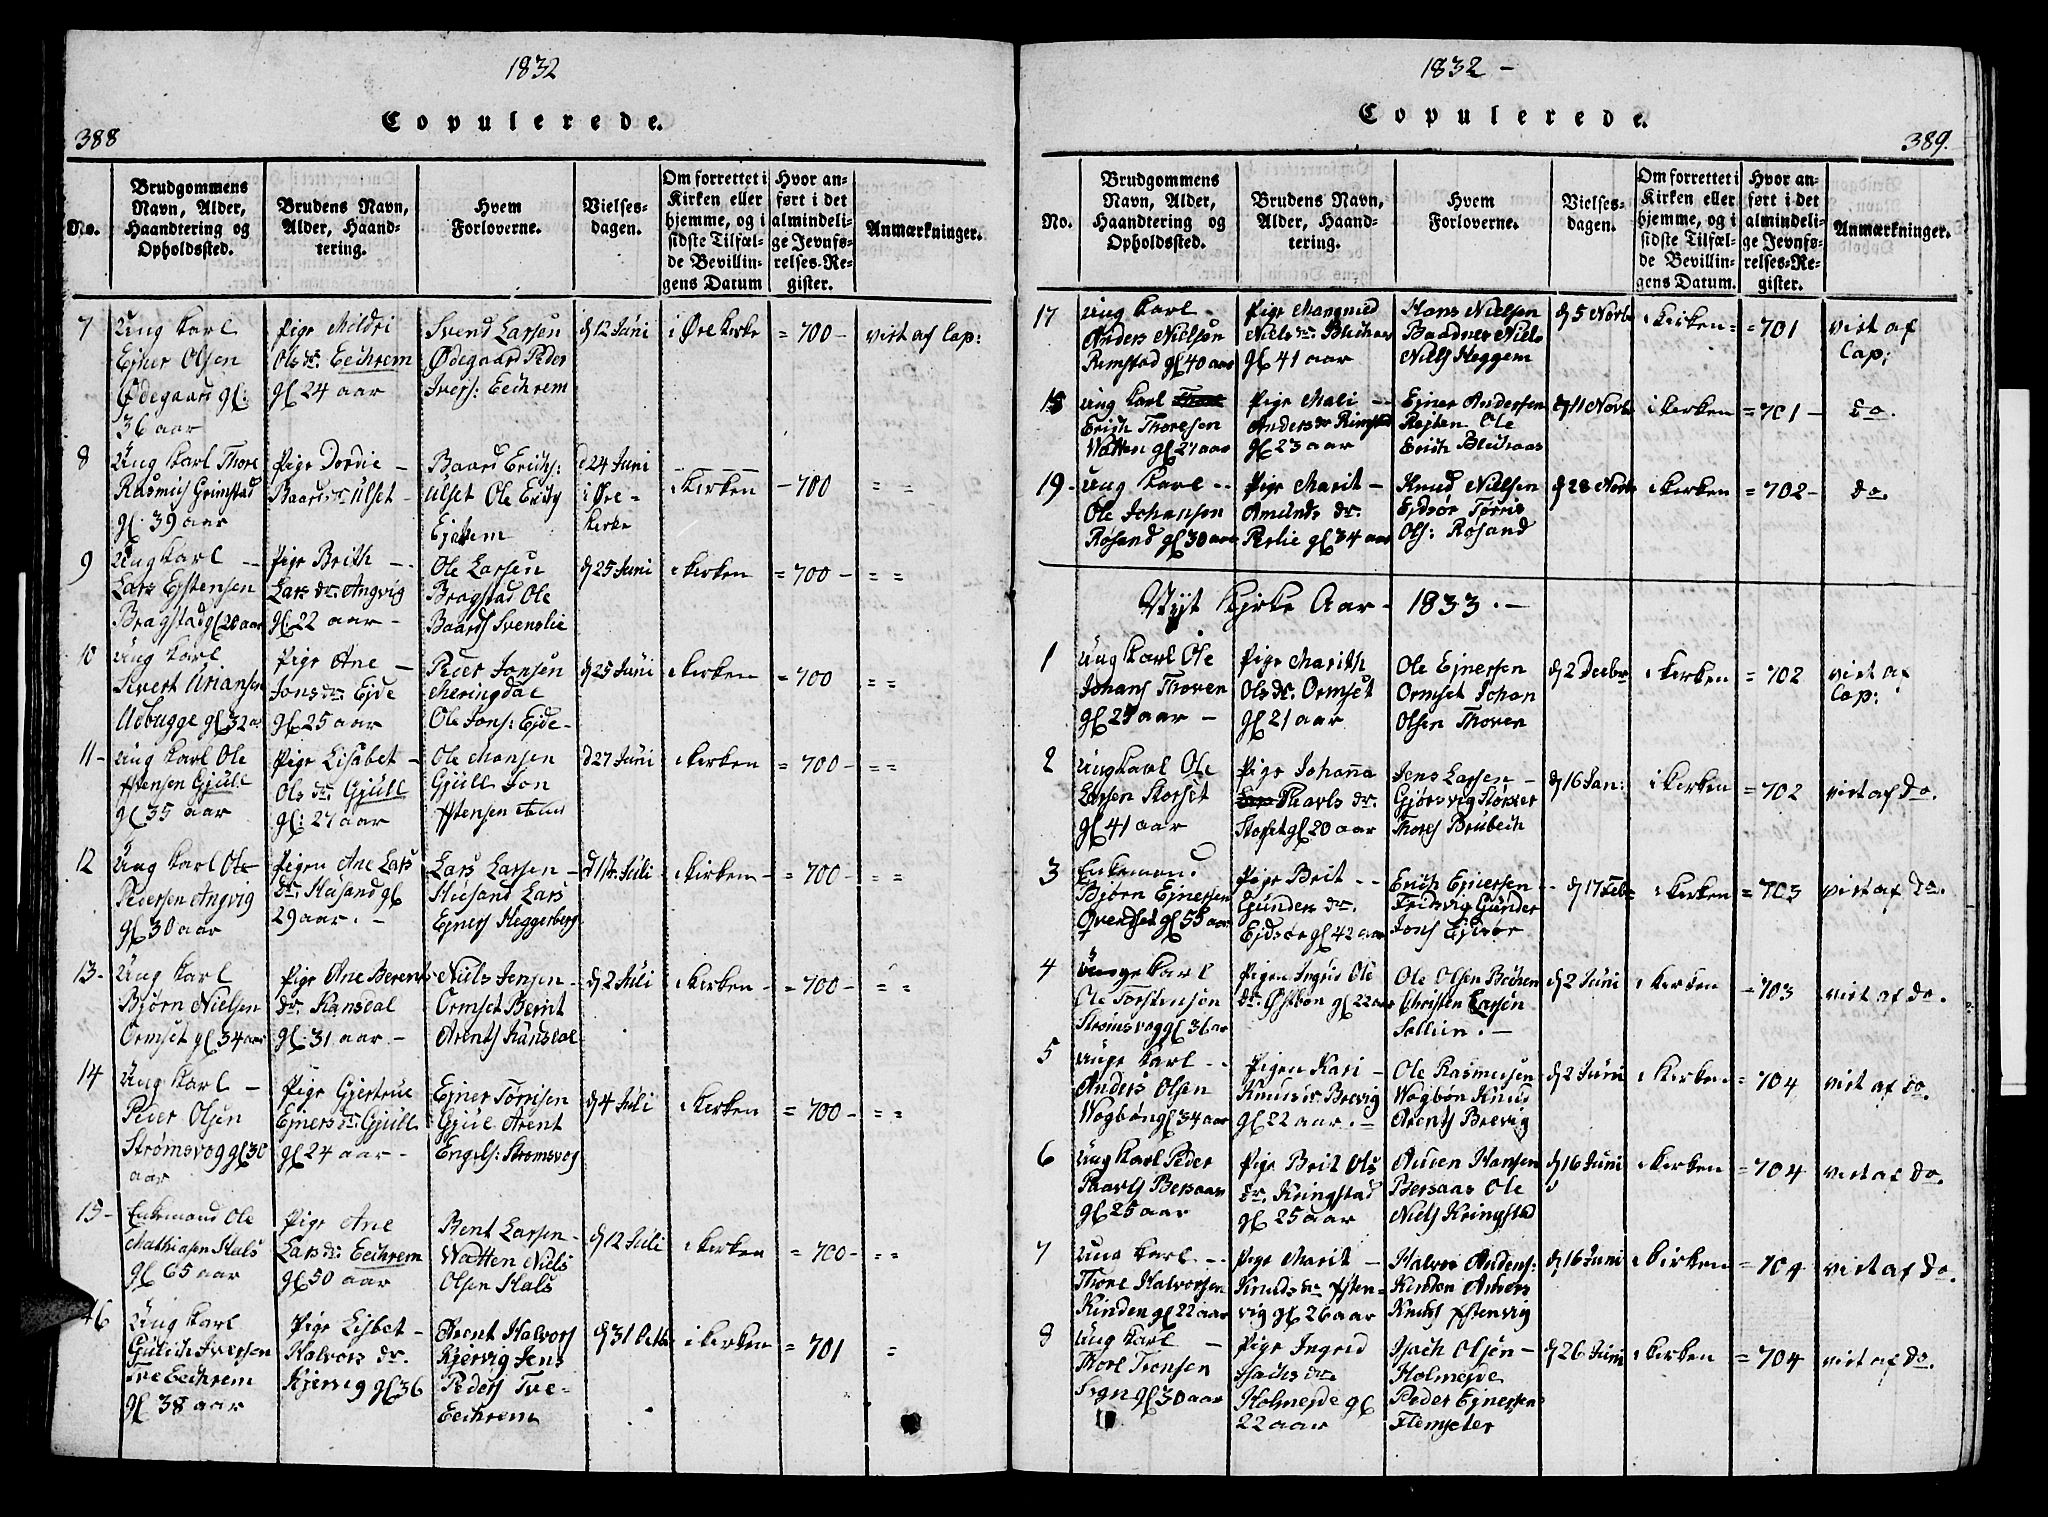 1832
Copulerede.
388
No.
Brudgommens
Navn, Alder,
Haandtering og
Opholdssted.
Brudens Navn,
Alder, Haand-
tering.
Hvem
Forloverne.
Vielses-
dagen.
Om forrettet i
Kirken eller
hjemme, og i
sidste Tilfæl-
de Bevillin-
gens Datum
Hvor an-
ført i det
almindeli-
ge Jevnfø-
relses-Re-
gister.
Anmærkninger.
7
Ung Karl
Ejner Olsen
Ødegaard gl:
36 aar
Pige Mildri
Ols dr. Eechrem
gl 24 aar
Svend Larsen
Ødegaard Peder
Ivers: Eechrem
d 12 Juni
i Øre Kirke
= 700 -
viet af Cap:
8
Ung Karl Thore
Rasmus Grimstad
gl: 39 aar
Pige Dordie -
Baards dr Ulset -
Baard Erichs:
Ulset Ole Erichs
Ejchem
d 24 Juni
i Øre -
Kirke
i Kirken
- 700
= =
9
Ung Karl --
Lars Ejstensen
Bragstad gl 28 aar
Pige Brith --
Lars dr. Angvig
gl: 22 aar -
Ole Larsen
Bragstad Ole
Baards Svenslie
d 25 Juni
i Kirken
= 700 -
= =
10
Ung Karl
Sivert Uriansen
Udbugge gl 32 a
Pige Ane -
Jons dr Ejde
gl 25 aar
Peder Jonsen
Meringdal
Ole Jons: Ejde -
d 25 Juni
i Kirken
= 700
= =
11 -
Ung Karl Ole
Estensen Gjüll
gl 35 aar
Pige Lisabet -
Ols dr. Gjüll
gl: 27 aar
Ole Monsen
Gjüll Jon
Estensen
d 27 Juni
i Kirken
= 700 -
= =
12
Ung Karl Ole
Pedersen Angvig
gl 30 aar
Pigen Ane Lars
dr. Husand gl
29 aar. -
Lars Larsen -
Husand Lars
Ejners Heggerberg
d 1ste Juli
i Kirken -
= 700 -
= =
13 -
Ung Karl
Bjørn Nielsen
Ormset gl 34 aar
Pige Ane Berent
dr. Kansdal
gl: 31 aar -
Niels Jensen -
Ormset Bernt
Arents Kansdal
d 2 Juli
i Kirken -
= 700 -
= =
14
Ung Karl -
Peder Olsen
Strømsvog gl 30
aar
Pige Gjertrue
Ejners dr. Gjüll
gl 24 aar -
Ejner Torrisen
Gjül Arent
Engels: Strømsvog
d 4 Juli
i Kirken
= 700 -
= =
15 -
Enkemand Ole
Mathiasen Hals
gl 65 aar
Pige Ane
Lars dr. Eechrem
gl 50 aar
Bent Larsen -
Watten Niels
Olsen Hals
d 12 Juli
i Kirken
= 700 -
= =
16
Ung Karl
Gulich Iversen
Tve Eechrem
gl 38 aar
Pige Lisbet -
Halvors dr.
Kjervig gl 36
Arent Halvors
Kjervig Jens
Peders Tve -
Eechrem
d 31 Octb
i Kirken
= 701
=
1832 -
Copulerede.
389.
No.
Brudgommens
Navn, Alder,
Haandtering og
Opholdssted.
Brudens Navn,
Alder, Haand-
tering.
Hvem
Forloverne.
Vielses-
dagen.
Om forrettet i
Kirken eller
hjemme, og i
sidste Tilfæl-
de Bevillin-
gens Datum.
Hvor an-
ført i det
almindeli-
ge Jevnfø-
relses-Re-
gister.
Anmærkninger.
17
Ung Karl -
Anders Nielsen
Rimstad gl 40 aar
Pige Mangnild
Niels dr. Blichaas
gl 41 aar
Hans Nielsen
Baadnes Niels
Niels Heggem
d 5 Novb
i Kirken =
= 701
viet af
Cap:
18
Ung Karl
Erich Thoresen
Watten gl 27 aar
Pige Mali --
Anders dr Rimstad
gl 23 aar
Ejner Andersen
Rejten Ole
Erich Blichaas
d 11 Novb
i Kirken
= 701 -
do.
19 -
Ung Karl --
Ole Johansen
Røsand gl 30 aar
Pige Marit -
Amunds dr.
Perlie gl 34 aar
Knud Nielsen
Ejdsør Tørris
Ols: Røsand
d 28 Novb
i Kirken
= 702 -
do.
Nyt Kirke Aar - 1833. -
1
Ung Karl Ole
Johans Thoven
gl 27 aar -
Pige Marith
Ols dr. Ormset
gl 21 aar
Ole Ejnersen
Ormset Johan
Olsen Thoven
d 2 Decbr
i Kirken
= 702
viet af
Cap:
2
Ung Karl Ole
Larsen Storset
gl 41 aar
Pige Johanna
Thorls dr.
Storset gl 20 aar
Jens Larsen -
Gjørsvig Størker
Thores Brubech
d 16 Jan:
i Kirken
= 702
viet af do.
3
Enkemand
Bjørn Ejnersen
Qvendset gl 55 aar
Pige Brit --
Gunder dr.
Ejdsør gl 42 aar
Erich Ejnersen
Fridsvig Gunder
Jons Ejdsør
d 17 Feb
i Kirken
= 703
viet af do.
4
Unge Karl
Ole Torstensen
Strømsvog gl 36 aar
Pigen Ingri Ole
dr. Østbøn gl 22 aar
Ole Olsen Bøchen
Christen Larsen
Sollien. -
d 2 Juni
i Kirken
= 703
viet af do.
5
Unge Karl --
Anders Olsen
Wogbøn gl 34 aar
Pigen Kari -
Knuds dr. Brevig
gl 22 aar. -
Ole Rasmusen
Wogbøn Knud
Arents Brevig
d 2 Juni
i Kirken
= 704
viet af do.
6
Ung Karl Peder
Paarls Bersaas
gl 25 aar
Pige Brit Ols
dr. Kringstad
gl 25 aar
Auden Hansen
Bersaas Ole
Niels Kringstad
d 16 Juni
i Kirken
= 704
viet af do.
7
Ung Karl --
Thore Halvorsen
Kinden gl 22 aar
Pige Marit -
Knuds dr Esten-
vig gl 26 aar
Halvor Anders:
Kinden Anders
Knuds Estenvig
d 16 Juni
i Kirken
= 704
viet af do.
8
Ung Karl -
Thore Tronsen
Sogn gl 30 aar
Pige Ingred
Isachs dr.
Holmejde gl
22 aar
Isach Olsen -
Holmejde
Peder Ejnersen
Flemseter
d 26 Juni
i Kirken
= 704
viet af do.